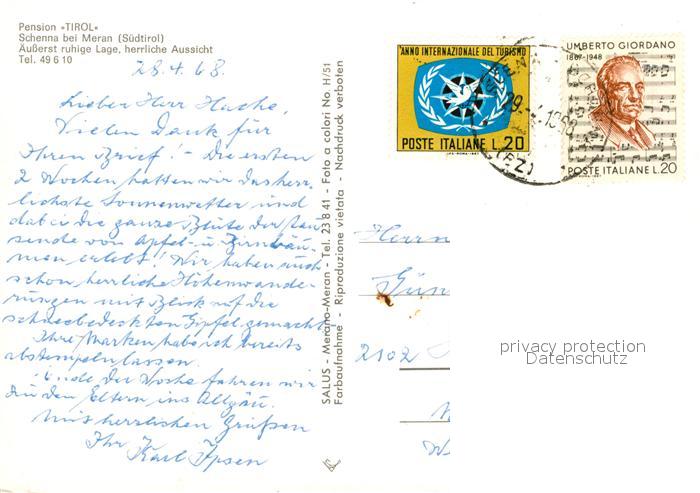 Pension »TIROL«
Schenna bei Meran (Südtirol)
Äußerst ruhige Lage, herrliche Aussicht
Tel. 49 6 10
28.4.68.
Lieber Herr Hache,
Vielen Dank für
Ihren Brief! - Die ersten
2 Wochen hatten wir das herr-
lichste Sonnenwetter und
dabei die ganze Blüte der Tau-
sende von Apfel- u. Birnbäu-
men erlebt! Wir haben auch
schon herrliche Höhenwande-
rungen mit Blick auf die
schneebedeckten Gipfel gemacht
Ihre Marken habe ich bereits
abstempeln lassen.
Ende der Woche fahren wir
zu den Eltern ins Allgäu.
Mit herzlichen Grüßen
Ihr Karl Ipsen
SALUS - Merano-Meran - Tel. 23 8 41 - Foto a colori No. H/51
Farbaufnahme - Riproduzione vietata - Nachdruck verboten
ANNO INTERNAZIONALE DEL TURISMO
POSTE ITALIANE L.20
UMBERTO GIORDANO
1867-1948
POSTE ITALIANE L.20
Herrn
Gün
2102
privacy protection
Datenschutz